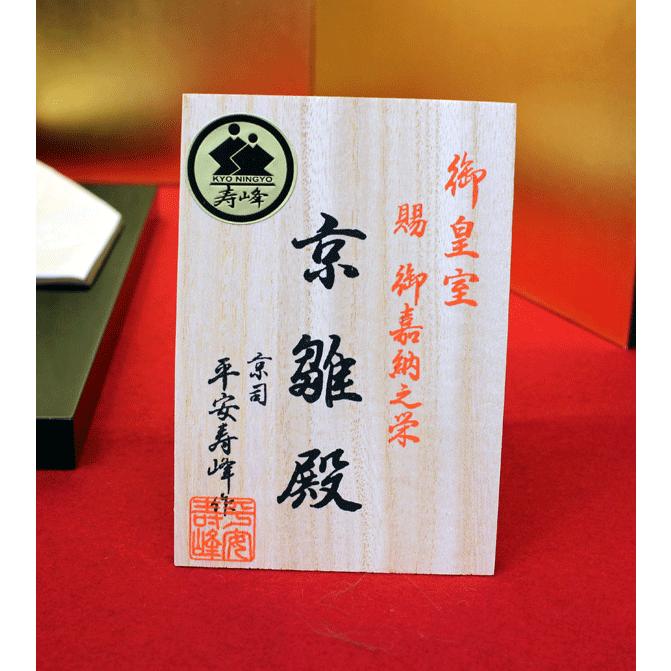 御皇室
賜 御嘉納之栄
京雛殿
京司
平安寿峰作
平安
寿峰
KYO NINGYO
寿峰